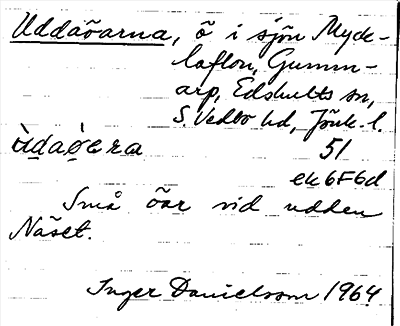 Uddaöarna, ö i sjön Myck-
laflon, Gumm-
arp, Edshults sn,
S. Vedbo hd, Jönk. l.
ùdaø̀era 51
ek 6F6d
Små öar vid udden
Näset.
Inger Danielsson 1964